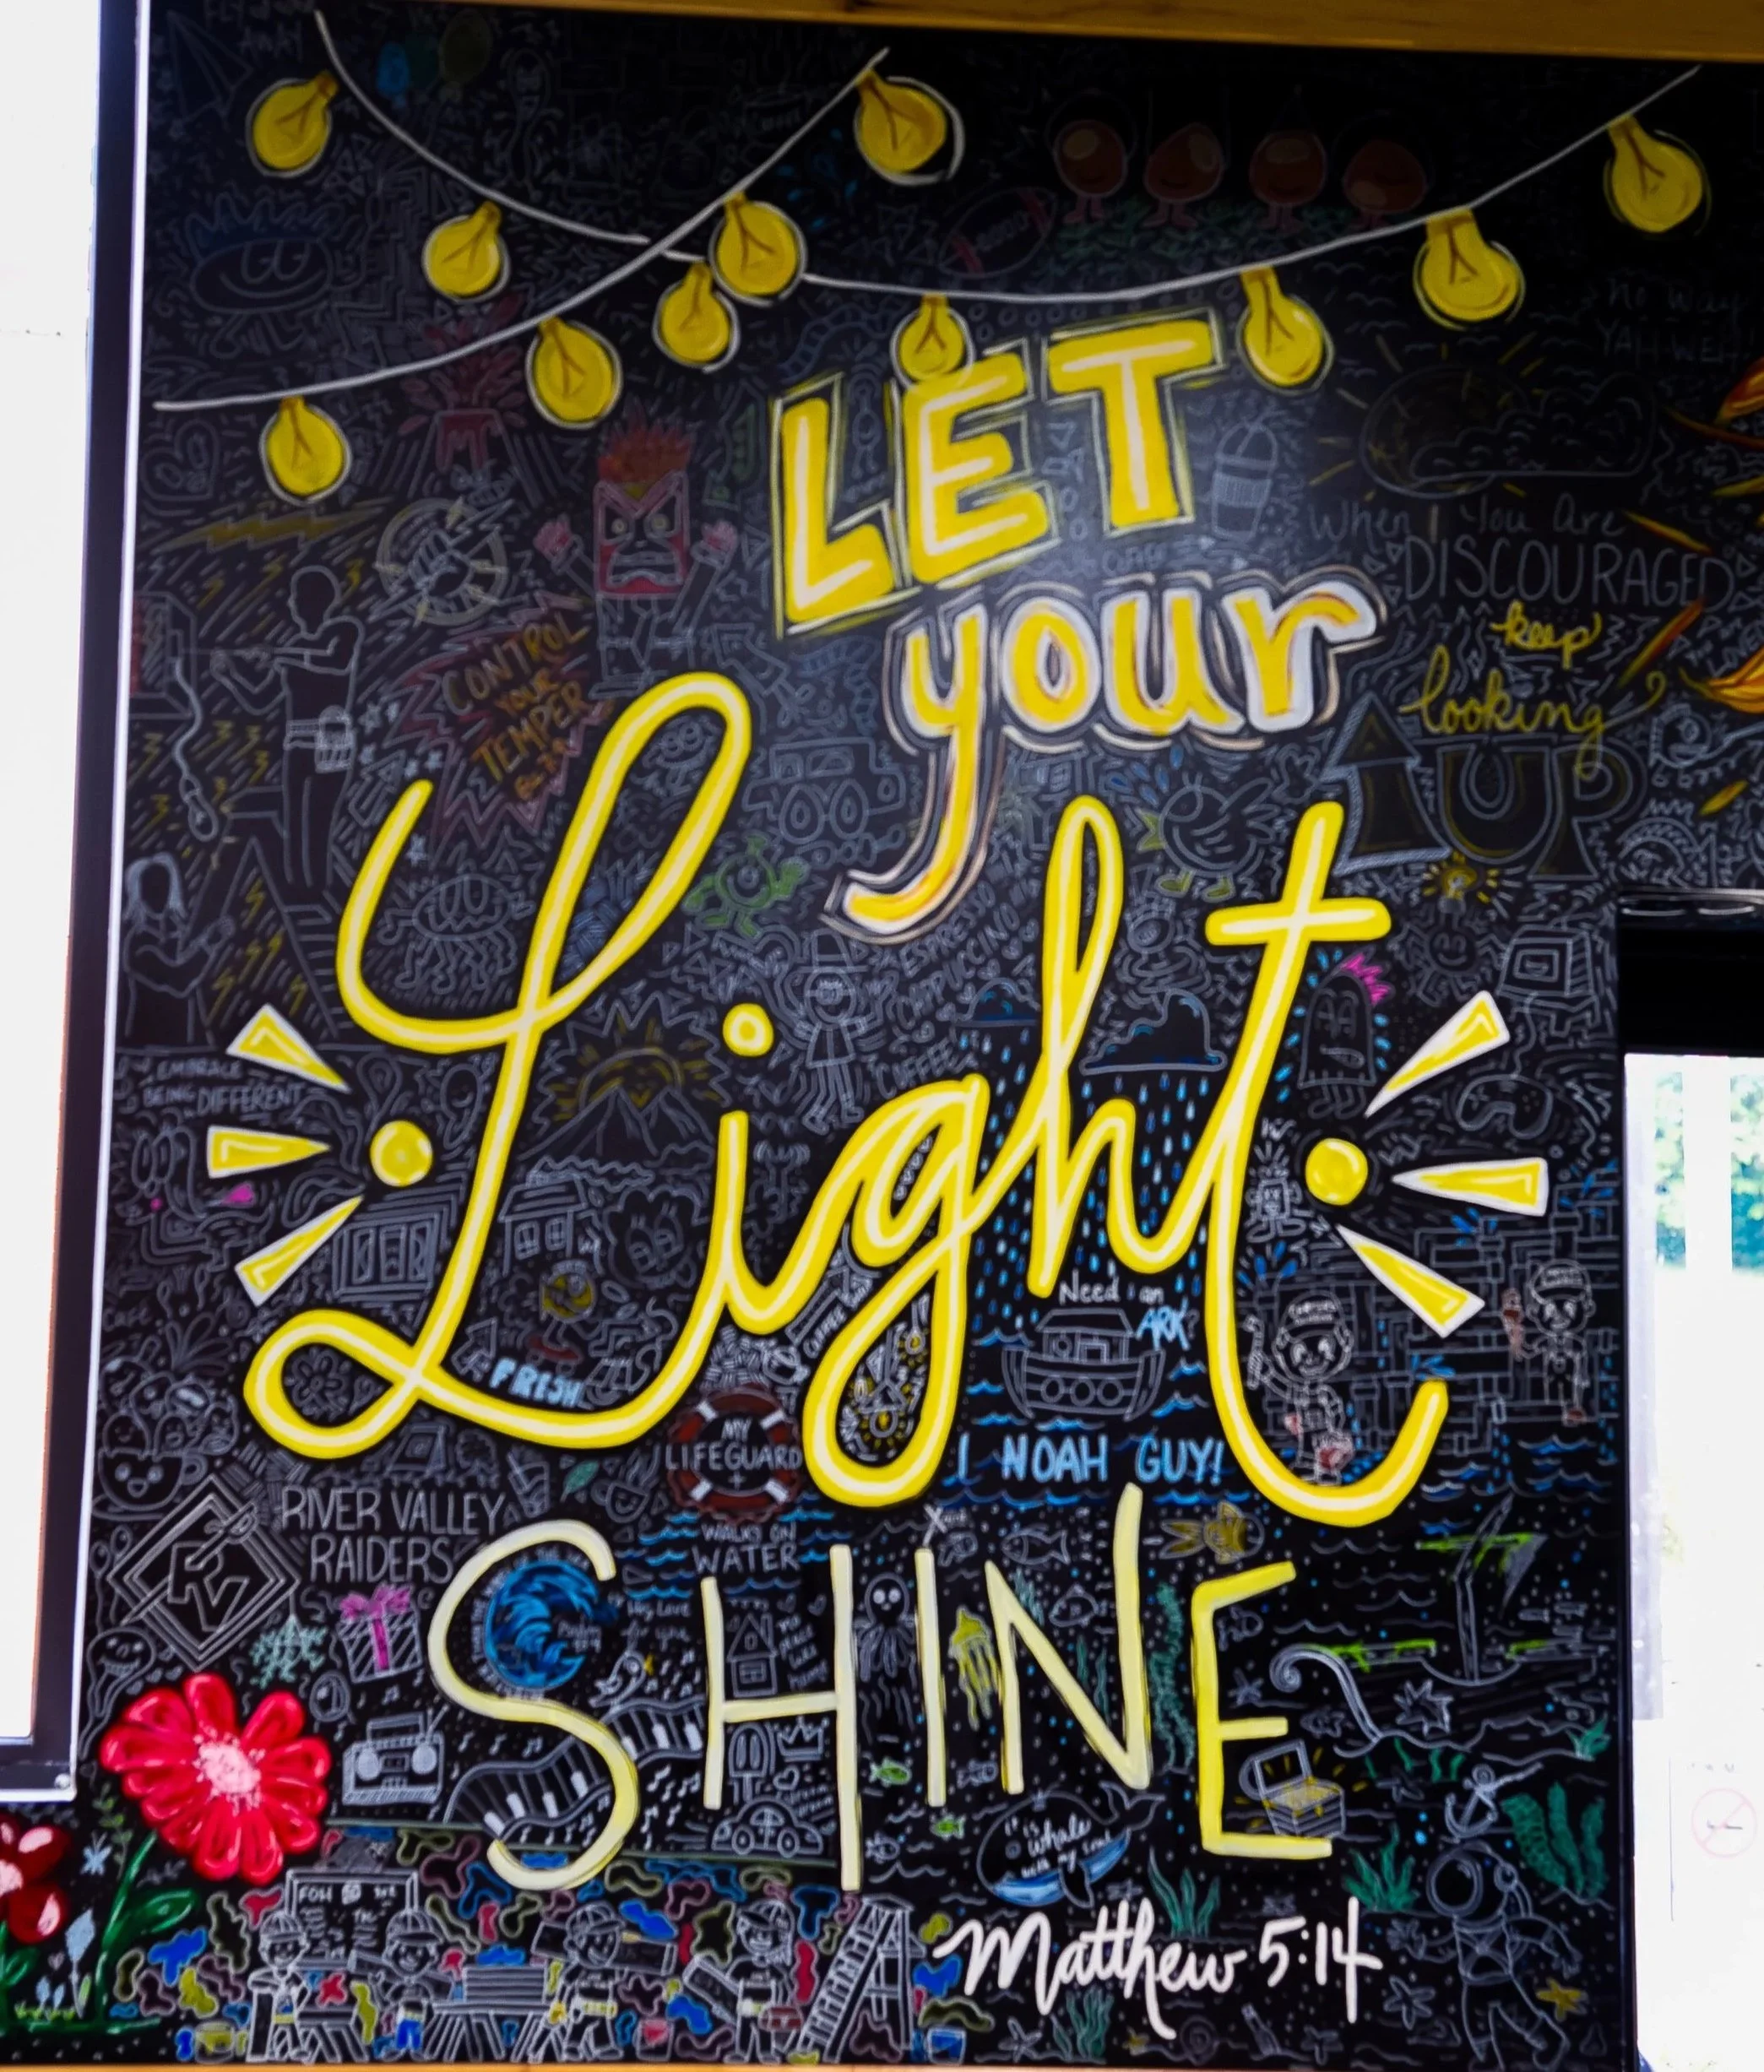 LET
your
Light
SHINE
Matthew 5:14
no way
YAHWEH
When You Are
DISCOURAGED
keep
looking
UP
CONTROL
YOUR
TEMPER
EMBRACE
BEING DIFFERENT
ESPRESSO
CAPPUCCINO
COFFEE
Need an
ARK?
I NOAH GUY!
FRESH
MY
LIFEGUARD
WALKS ON
WATER
RIVER VALLEY
RAIDERS
RV
it is
whale
with my soul